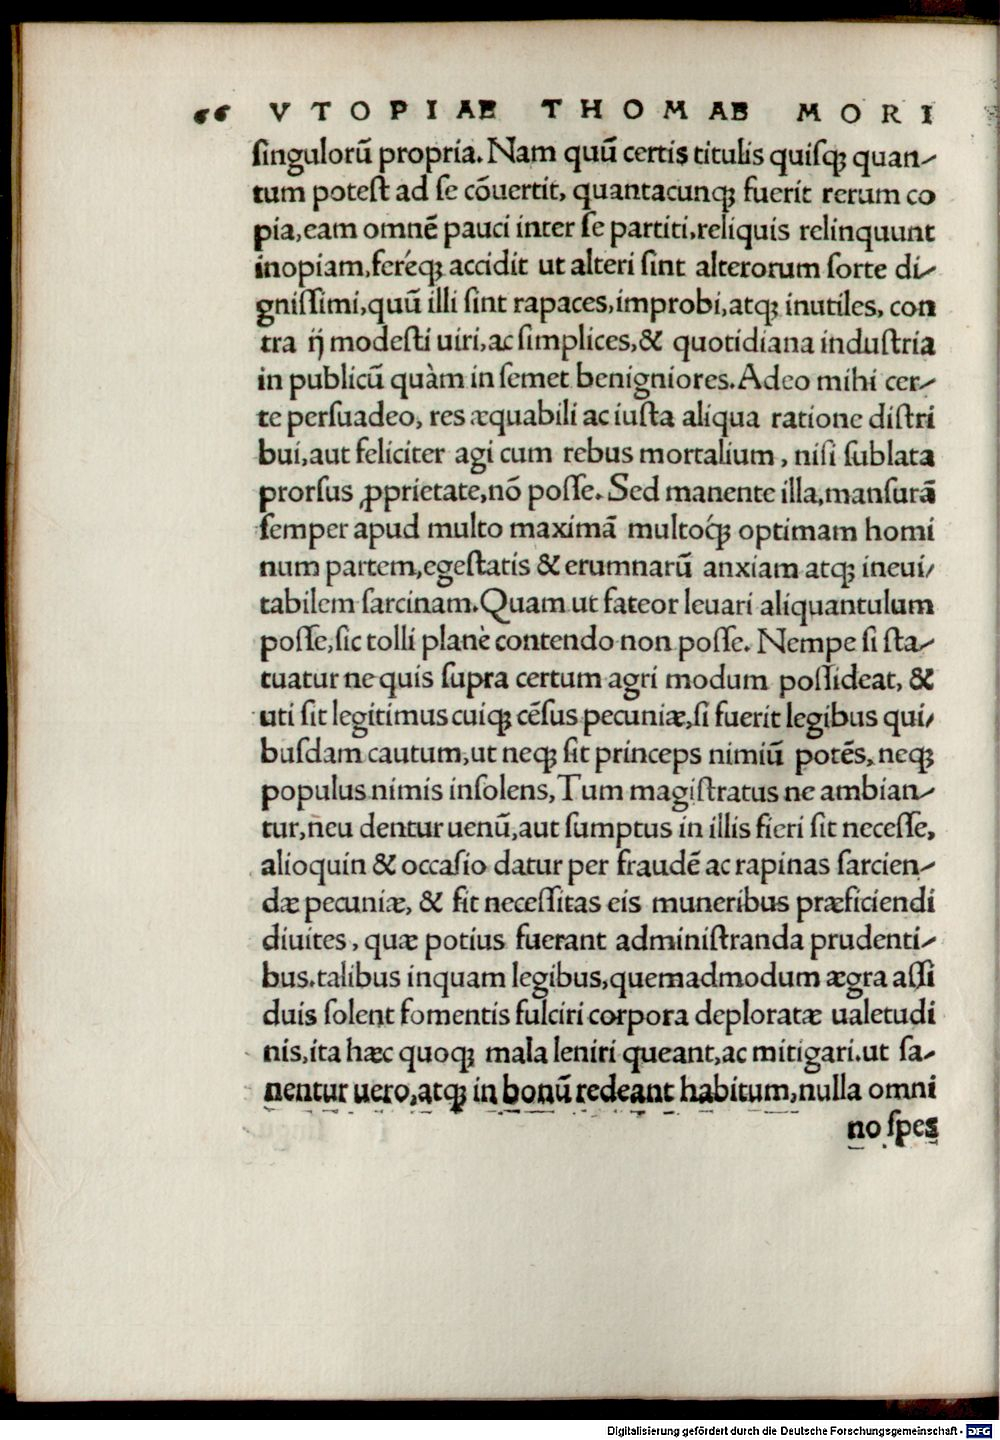 66 VTOPIAE THOMAE MORI
ſingulorũ propria. Nam quũ certis titulis quiſq; quan-
tum poteſt ad ſe cõuertit, quantacunq; fuerit rerum co
pia, eam omnẽ pauci inter ſe partiti, reliquis relinquunt
inopiam, feréq; accidit ut alteri ſint alterorum ſorte di-
gniſſimi, quũ illi ſint rapaces, improbi, atq; inutiles, con
tra ij modeſti uiri, ac ſimplices, & quotidiana induſtria
in publicũ quàm in ſemet benigniores. Adeo mihi cer-
te perſuadeo, res æquabili ac iuſta aliqua ratione diſtri
bui, aut feliciter agi cum rebus mortalium, niſi ſublata
prorſus ꝓprietate, nõ poſſe. Sed manente illa, manſurã
ſemper apud multo maximã multoq́; optimam homi
num partem, egeſtatis & erumnarũ anxiam atq; ineui-
tabilem ſarcinam. Quam ut fateor leuari aliquantulum
poſſe, ſic tolli planè contendo non poſſe. Nempe ſi ſta-
tuatur ne quis ſupra certum agri modum poſſideat, &
uti ſit legitimus cuiq; cẽſus pecuniæ, ſi fuerit legibus qui-
buſdam cautum, ut neq; ſit princeps nimiũ potẽs, neq;
populus nimis inſolens, Tum magiſtratus ne ambian-
tur, neu dentur uenũ, aut ſumptus in illis fieri ſit neceſſe,
alioquin & occaſio datur per fraudẽ ac rapinas ſarcien-
dæ pecuniæ, & fit neceſſitas eis muneribus præficiendi
diuites, quæ potius fuerant adminiſtranda prudenti-
bus. talibus inquam legibus, quemadmodum ægra aſſi
duis ſolent fomentis fulciri corpora deploratæ ualetudi
nis, ita hæc quoq; mala leniri queant, ac mitigari. ut ſa-
nentur uero, atq; in bonũ redeant habitum, nulla omni
no ſpes
Digitalisierung gefördert durch die Deutsche Forschungsgemeinschaft - DFG